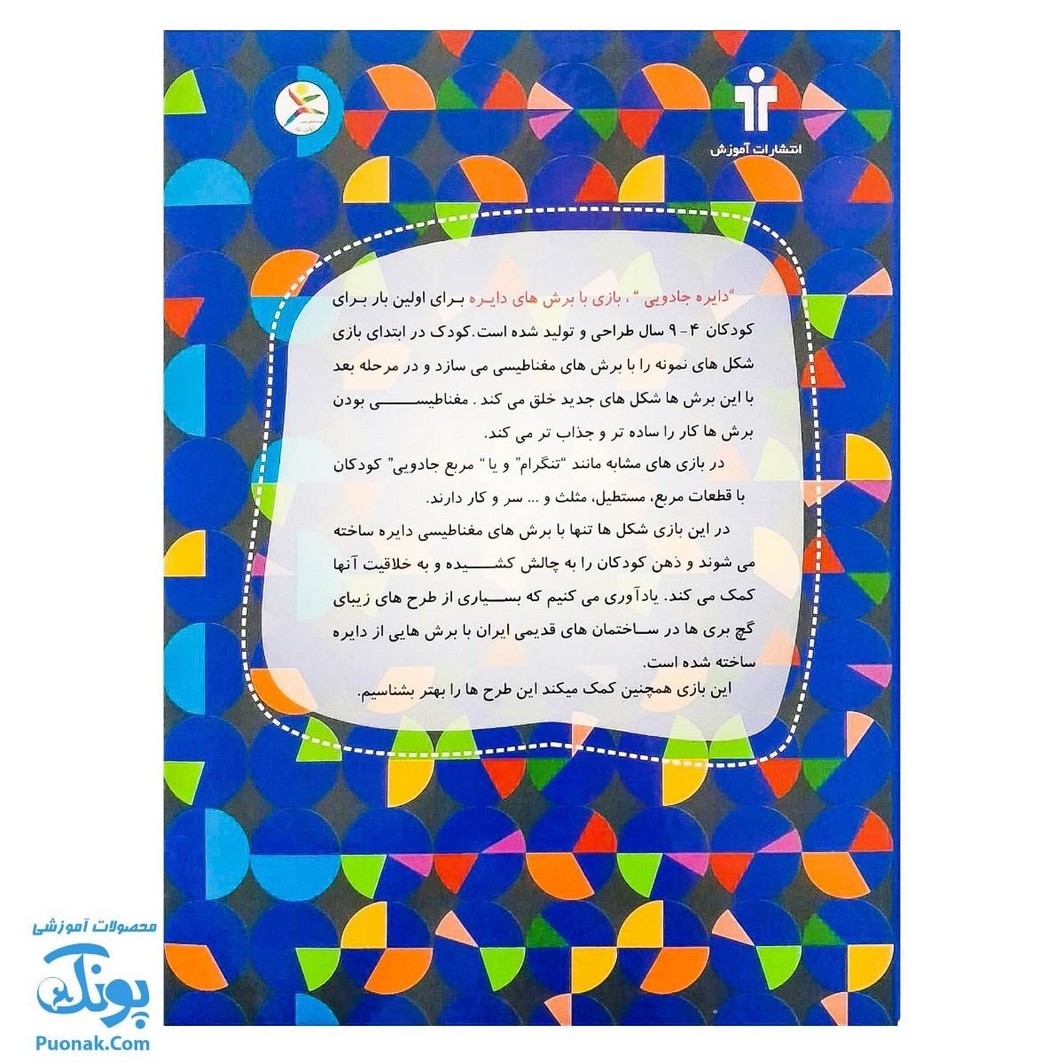 انتشارات آموزش
“دایره جادویی “، بازی با برش های دایـره بـرای اولین بار بـرای
کودکان ۴-۹ سال طراحی و تولید شده است.کودک در ابتدای بازی
شکل های نمونه را با برش های مغناطیسی می سازد و در مرحله بعد
با این برش ها شکل های جدید خلق می کند . مغناطیســـــی بودن
برش ها کار را ساده تر و جذاب تر می کند.
در بازی های مشابه مانند “تنگرام” و یا “ مربع جادویی” کودکان
با قطعات مربع، مستطیل، مثلث و ... سر و کار دارند.
در این بازی شکل ها تنها با برش های مغناطیسی دایره ساخته
می شوند و ذهن کودکان را به چالش کشـــــیده و به خلاقیت آنها
کمک می کند. یادآوری می کنیم که بســـیاری از طرح های زیبای
گچ بری ها در ســاختمان های قدیمی ایران با برش هایی از دایره
ساخته شده است.
این بازی همچنین کمک میکند این طرح ها را بهتر بشناسیم.
محصولات آموزشی
پونک
Puonak.Com